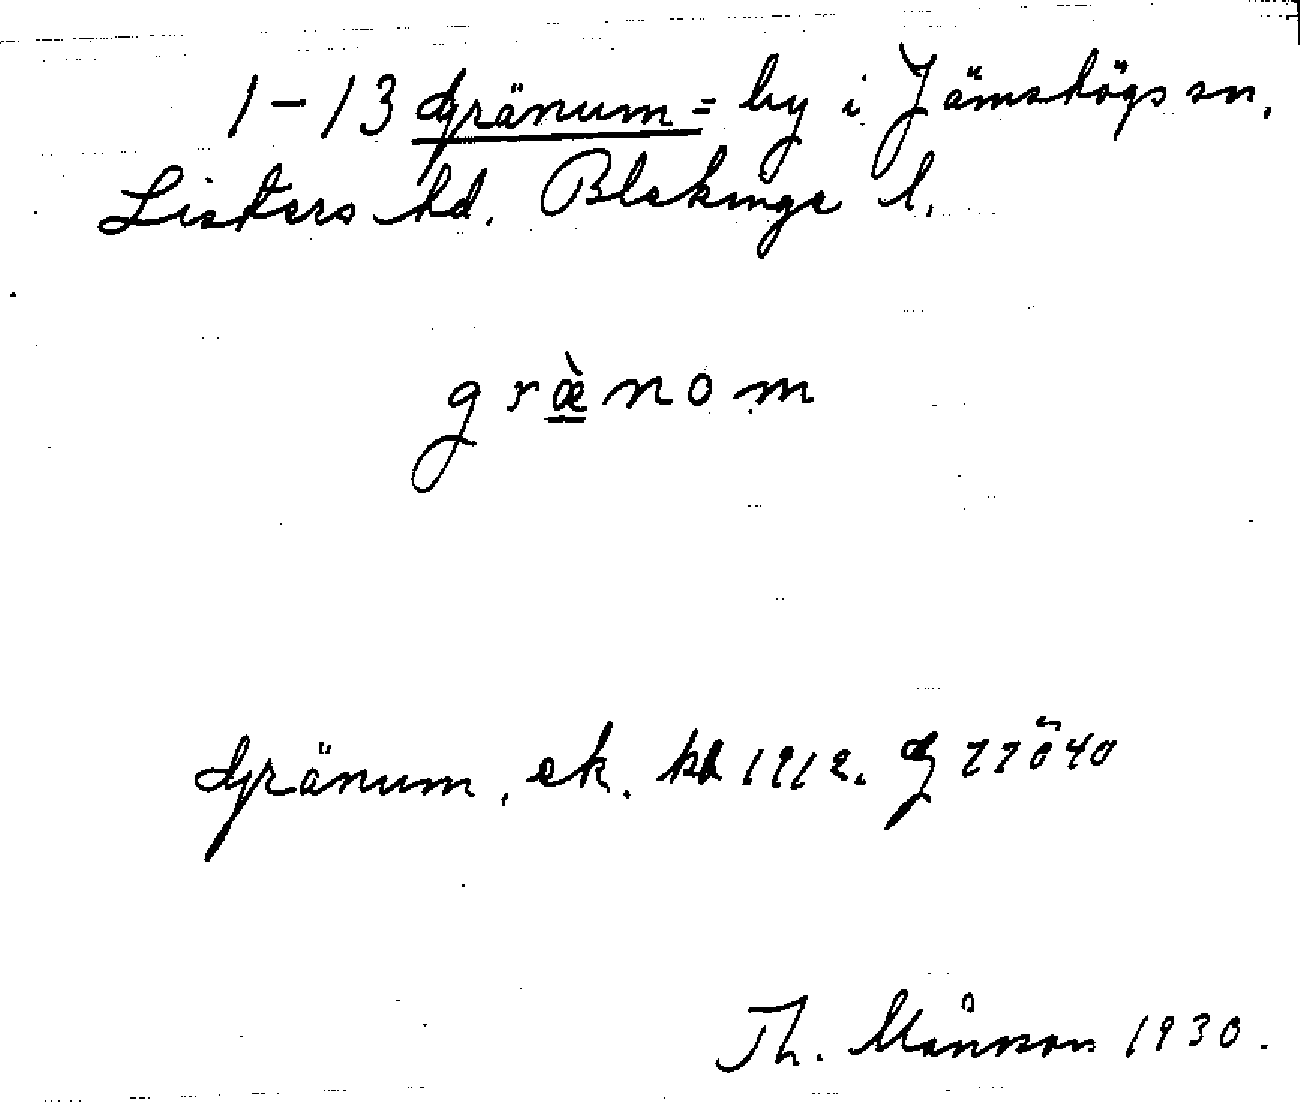 1-13 Gränum = by i Jämshögs sn.
Listers hd. Blekinge l.
græ̀nom
Gränum, ek. kbl 1912. G 77ö40
Th. Månsson 1930.